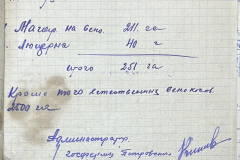 Магар на сено. 211. га
Люцерна 40 га
итого 251 га
Кроме того естественных сенокосов.
2500 га
Администратор,
госферму Петровским